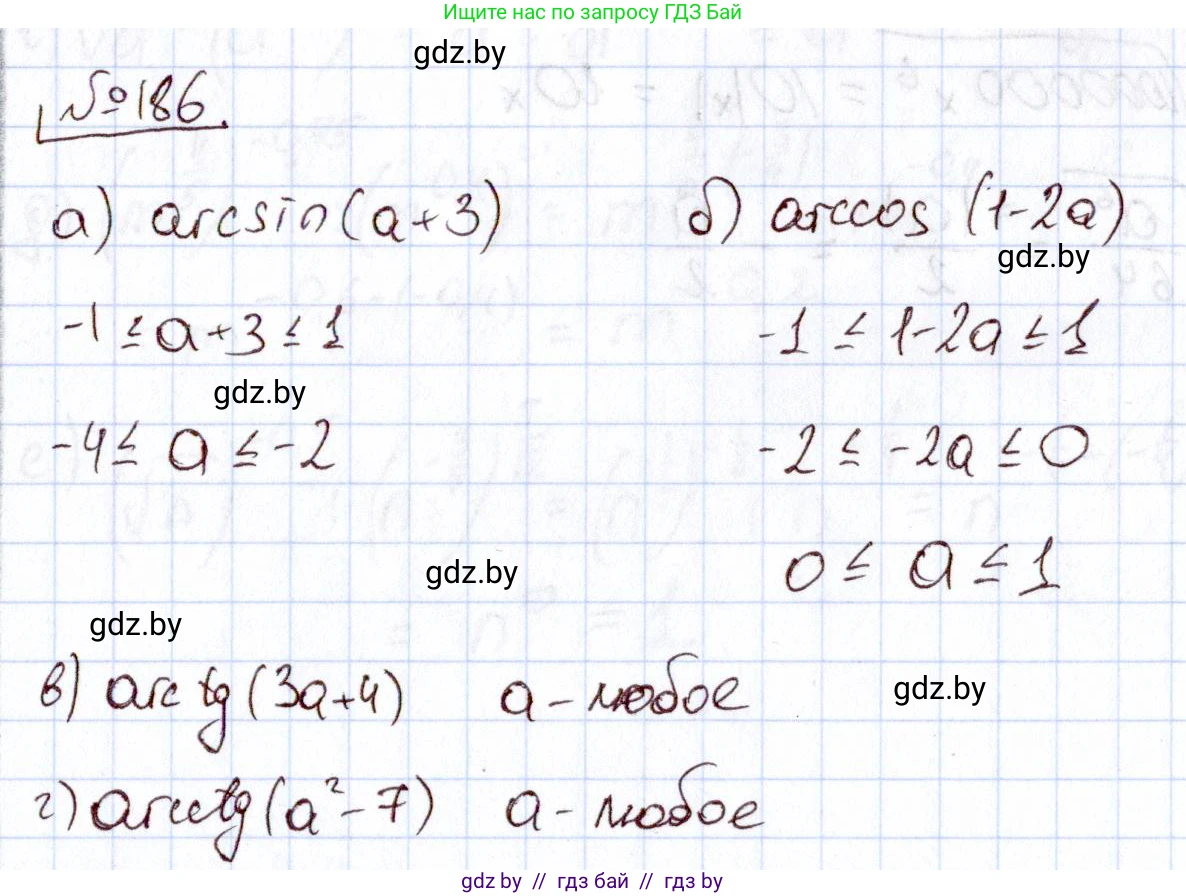 Ищите нас по запросу ГДЗ Бай
gdz.by
№186.
а) arcsin(a+3)
б) arccos (1-2a)
gdz.by
-1 ≤ a+3 ≤ 1
-1 ≤ 1-2a ≤ 1
gdz.by
-4 ≤ a ≤ -2
-2 ≤ -2a ≤ 0
0 ≤ a ≤ 1
gdz.by
gdz.by
в) arctg(3a+4) a - любое
gdz.by
г) arcctg(a²-7) a - любое
gdz.by // гдз бай // гдз by